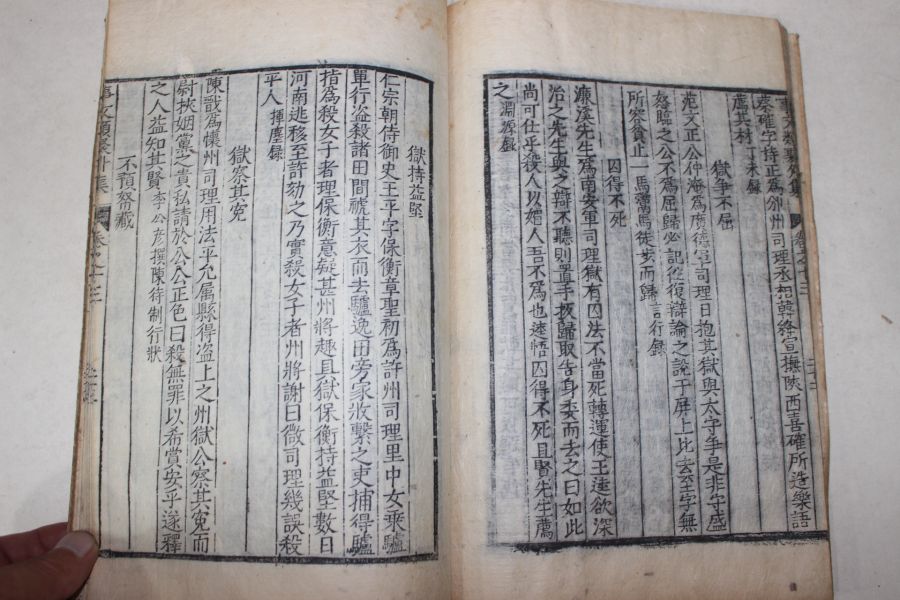 事文類聚外集 卷之十三
蔡確字持正爲邠州司理丞相韓絳宣撫陝西喜確所造樂語
薦其材
獄爭不屈
范文正公仲淹爲廣德軍司理日抱其獄與太守爭是非守盛
怒臨之公不爲屈歸必記往復辯論之說于屏上比去至字無
所容貧止一馬鬻馬徒步而歸言行錄
囚得不死
濂溪先生爲南安軍司理獄有囚法不當死轉運使王逵欲深
治之先生與之辯不聽則置手板歸取告身委而去之曰如此
尚可仕乎殺人以媚人吾不爲也逵悟囚得不死且賢先生薦
之淵源錄
獄持益堅
仁宗朝侍御史王平字保衡章聖初爲許州司理里中女乘驢
單行盜殺諸田間褫其衣而去驢逸田旁家收繫之吏捕得驢
指爲殺女子者理保衡意疑甚州將趣具獄保衡持益堅數日
河南逃移至許劾之乃實殺女子者州將謝曰微司理幾誤殺
平人揮麈錄
獄察其寃
陳戬爲懷州司理用法平允屬縣得盜上之州獄公察其寃而
尉挾姻黨之貴私請於公公正色曰殺無罪以希賞安乎遂釋
之人益知其賢李公彥撰陳待制行狀
不預帑藏
事文類聚外集 卷之十三